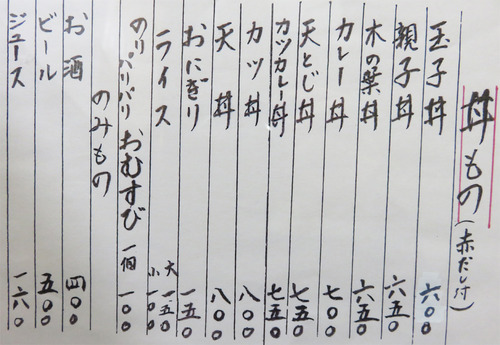 丼もの(赤だし付)
玉子丼 六〇〇
親子丼 六五〇
木の葉丼 六五〇
カレー丼 七〇〇
天とじ丼 七五〇
カツカレー丼 七五〇
カツ丼 八〇〇
天丼 八〇〇
おにぎり 一五〇
ライス 大 一五〇 小 一〇〇
のりパリパリおむすび 一個 一〇〇
のみもの
お酒 四〇〇
ビール 五〇〇
ジュース 一六〇